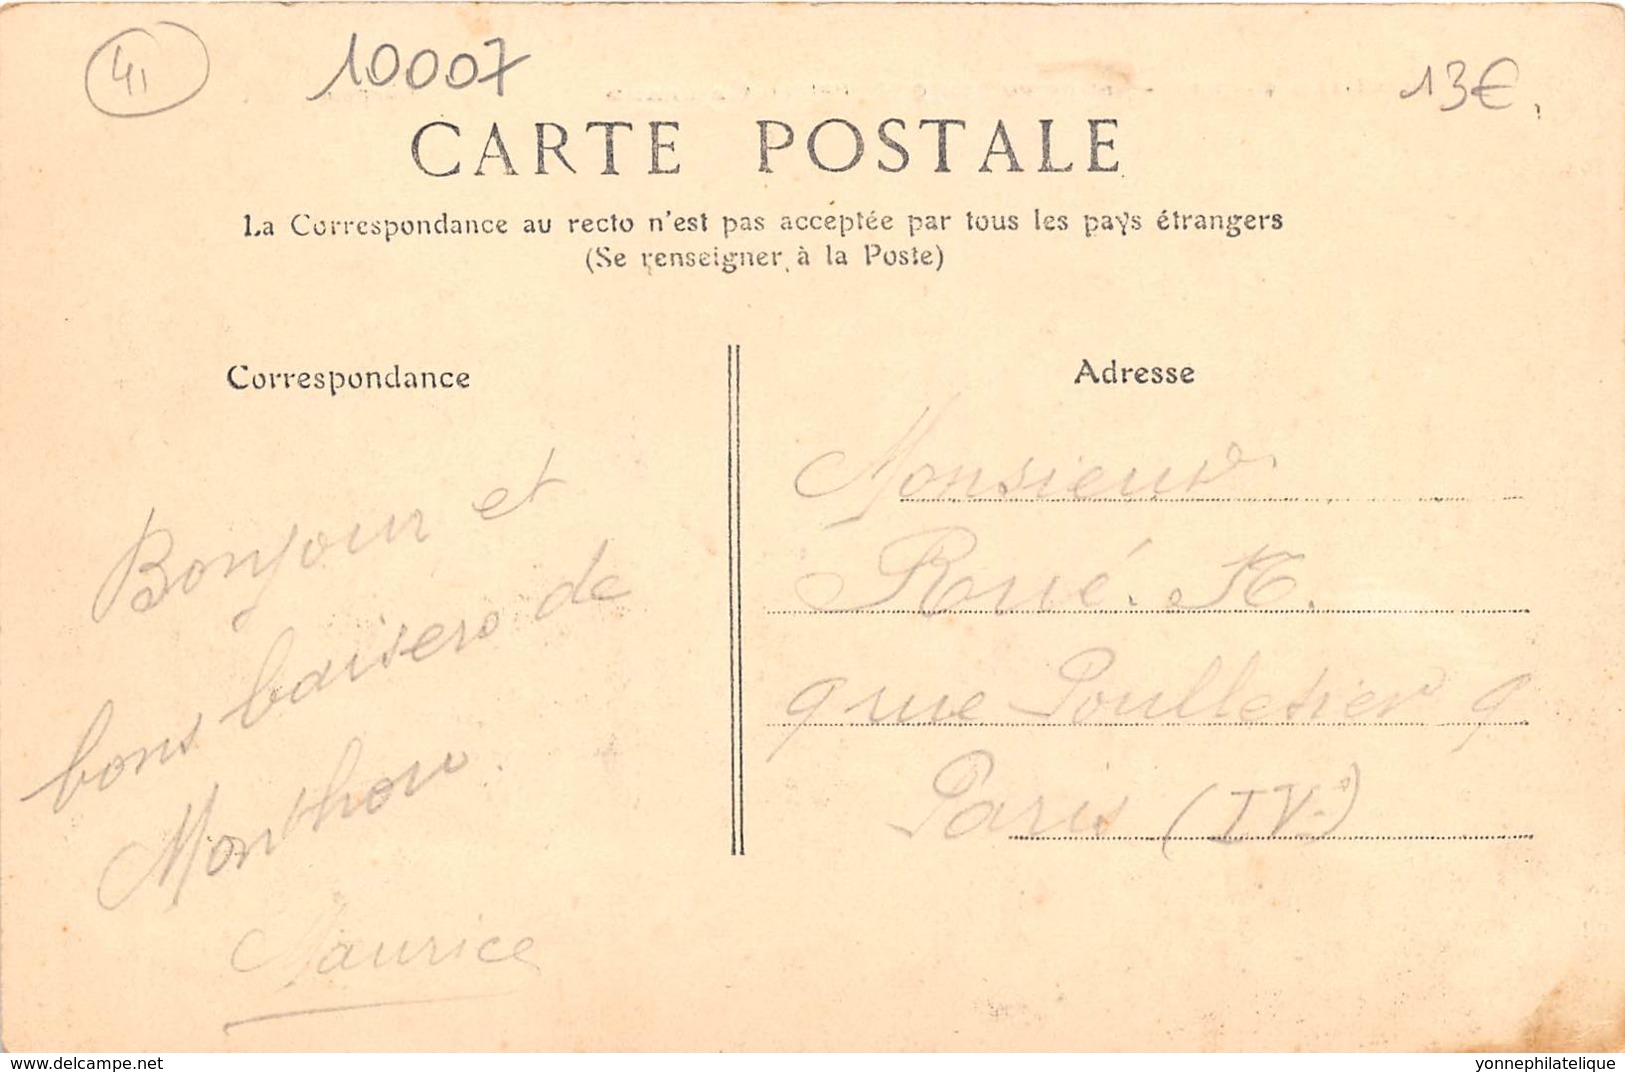 41
10007
13€
CARTE POSTALE
La Correspondance au recto n'est pas acceptée par tous les pays étrangers
(Se renseigner à la Poste)
Correspondance
Adresse
Bonjour et
bons baisers de
Monthou.
Maurice
Monsieur
9 rue Poulletier 9
Paris (IVe)
www.delcampe.net
yonnephilatelique